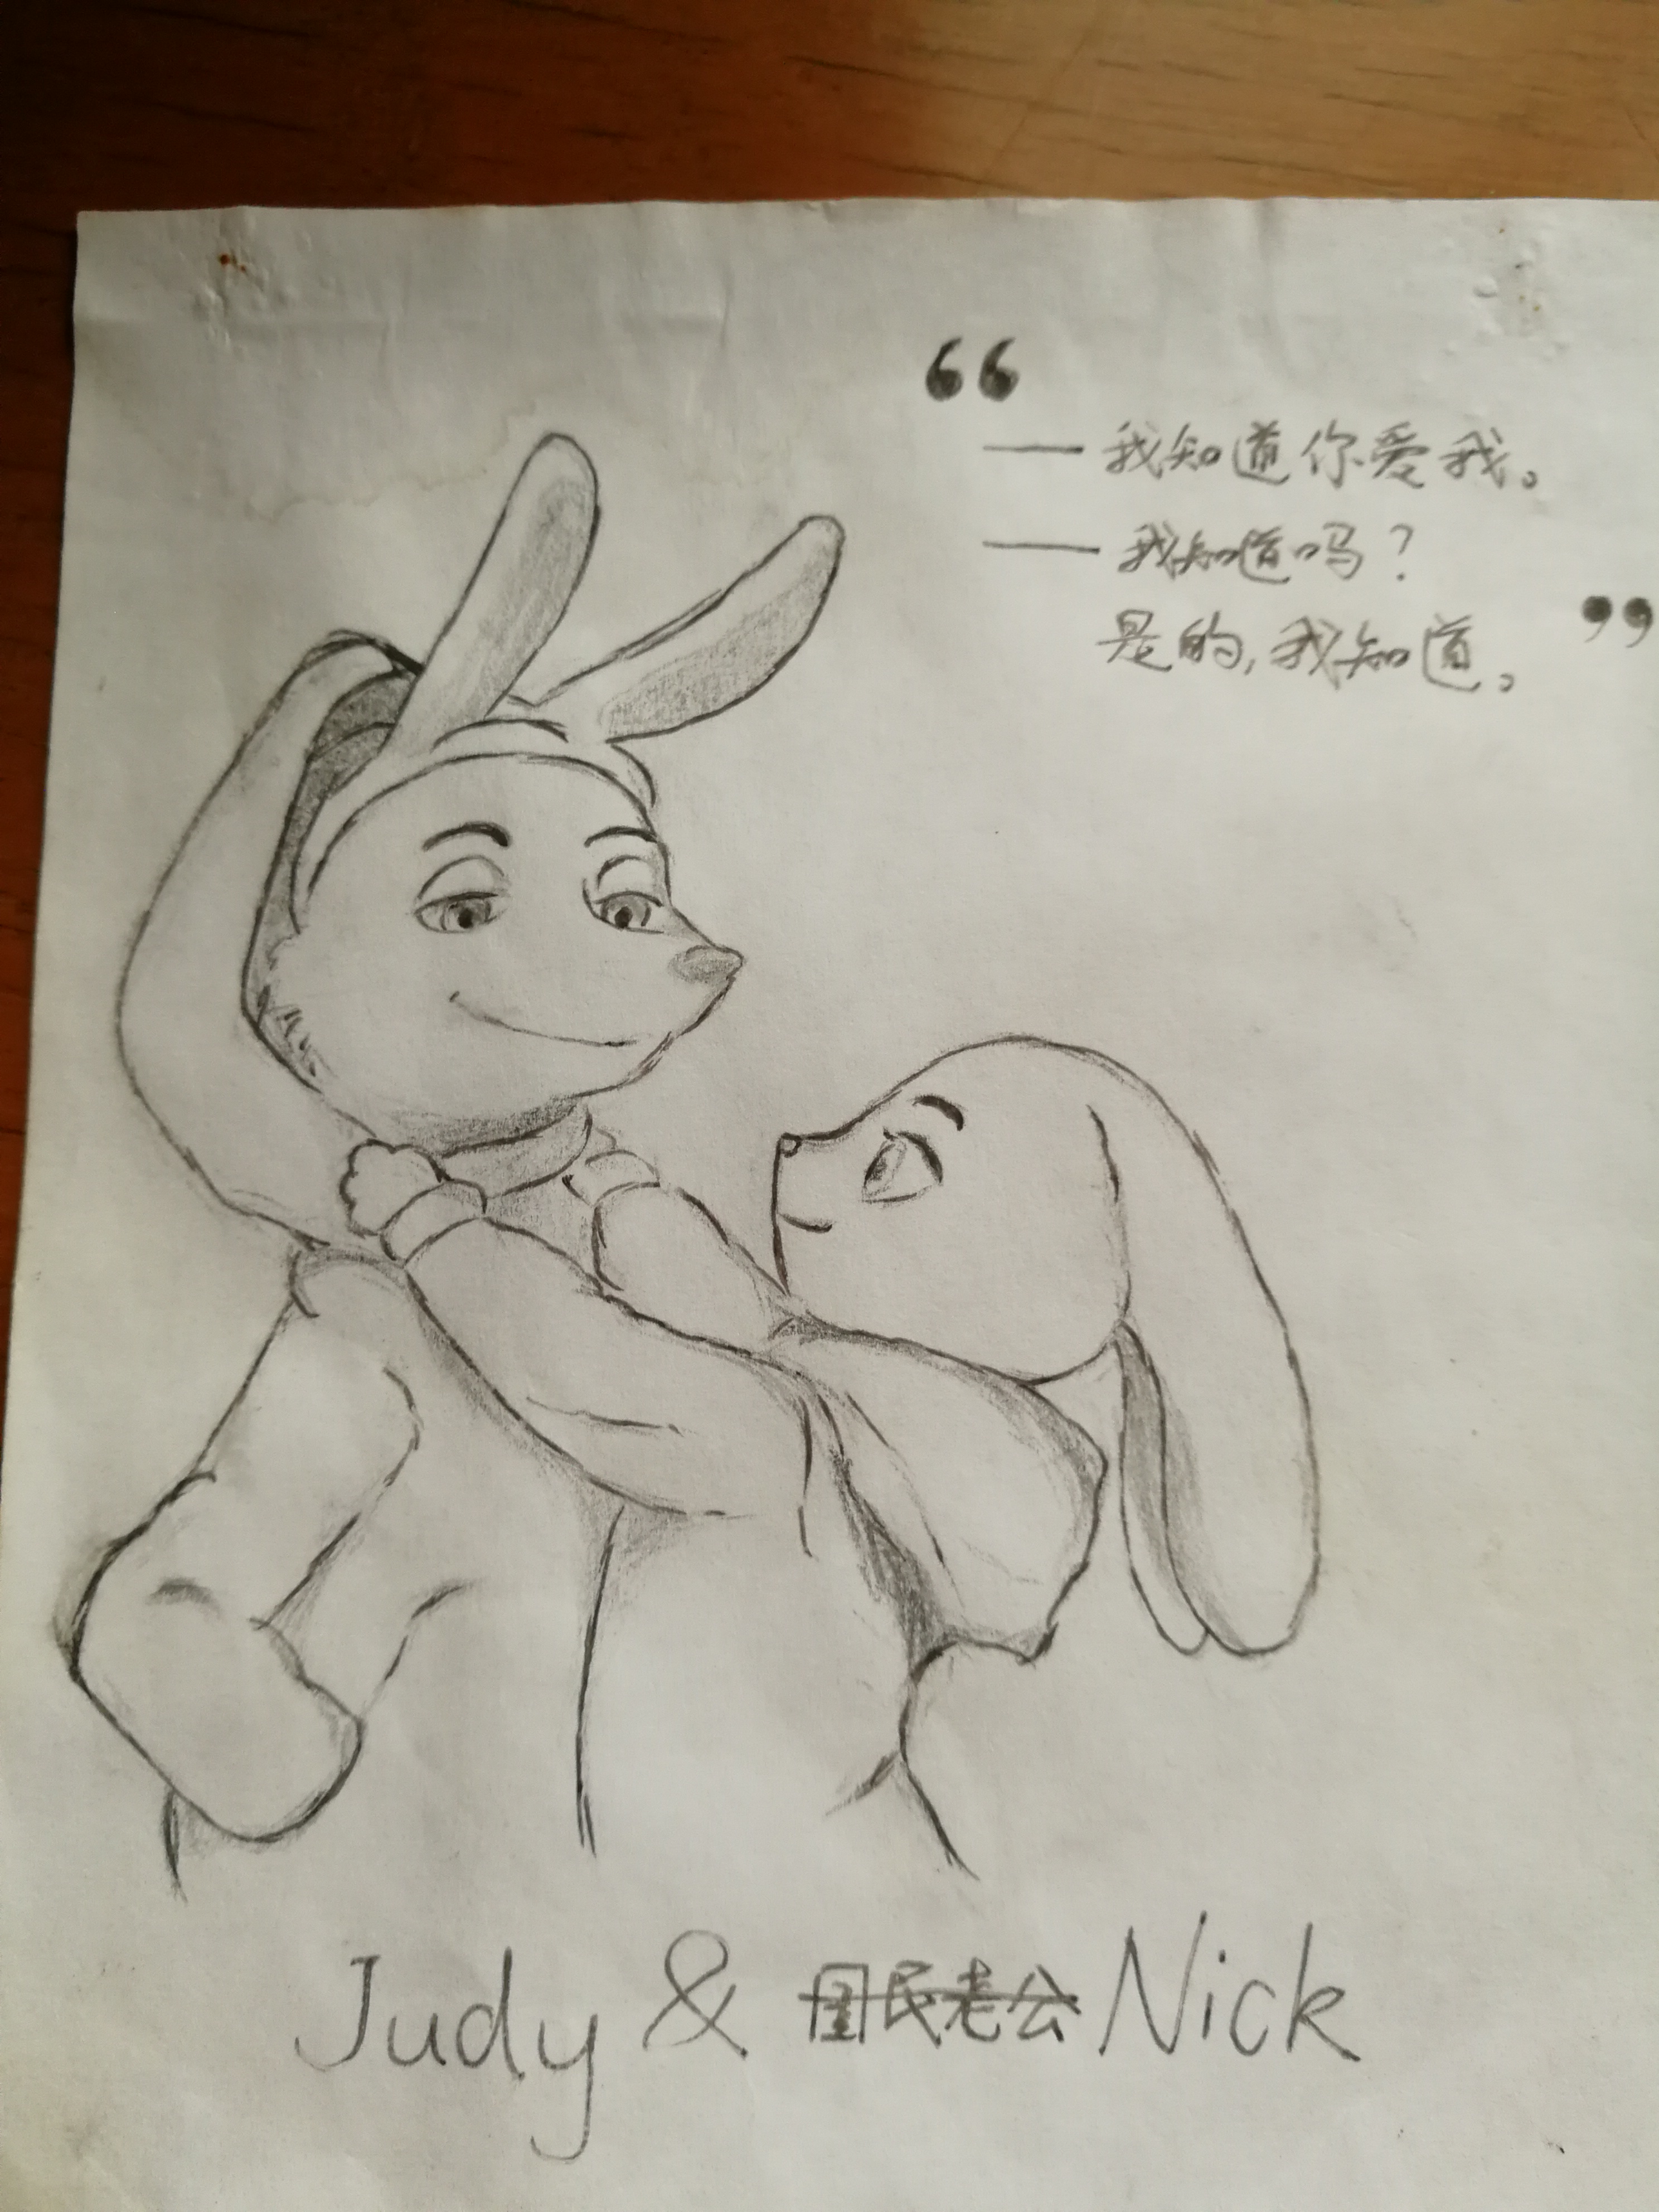 “
——我知道你爱我。
——我知道吗?
是的,我知道。”
Judy & 国民老公 Nick